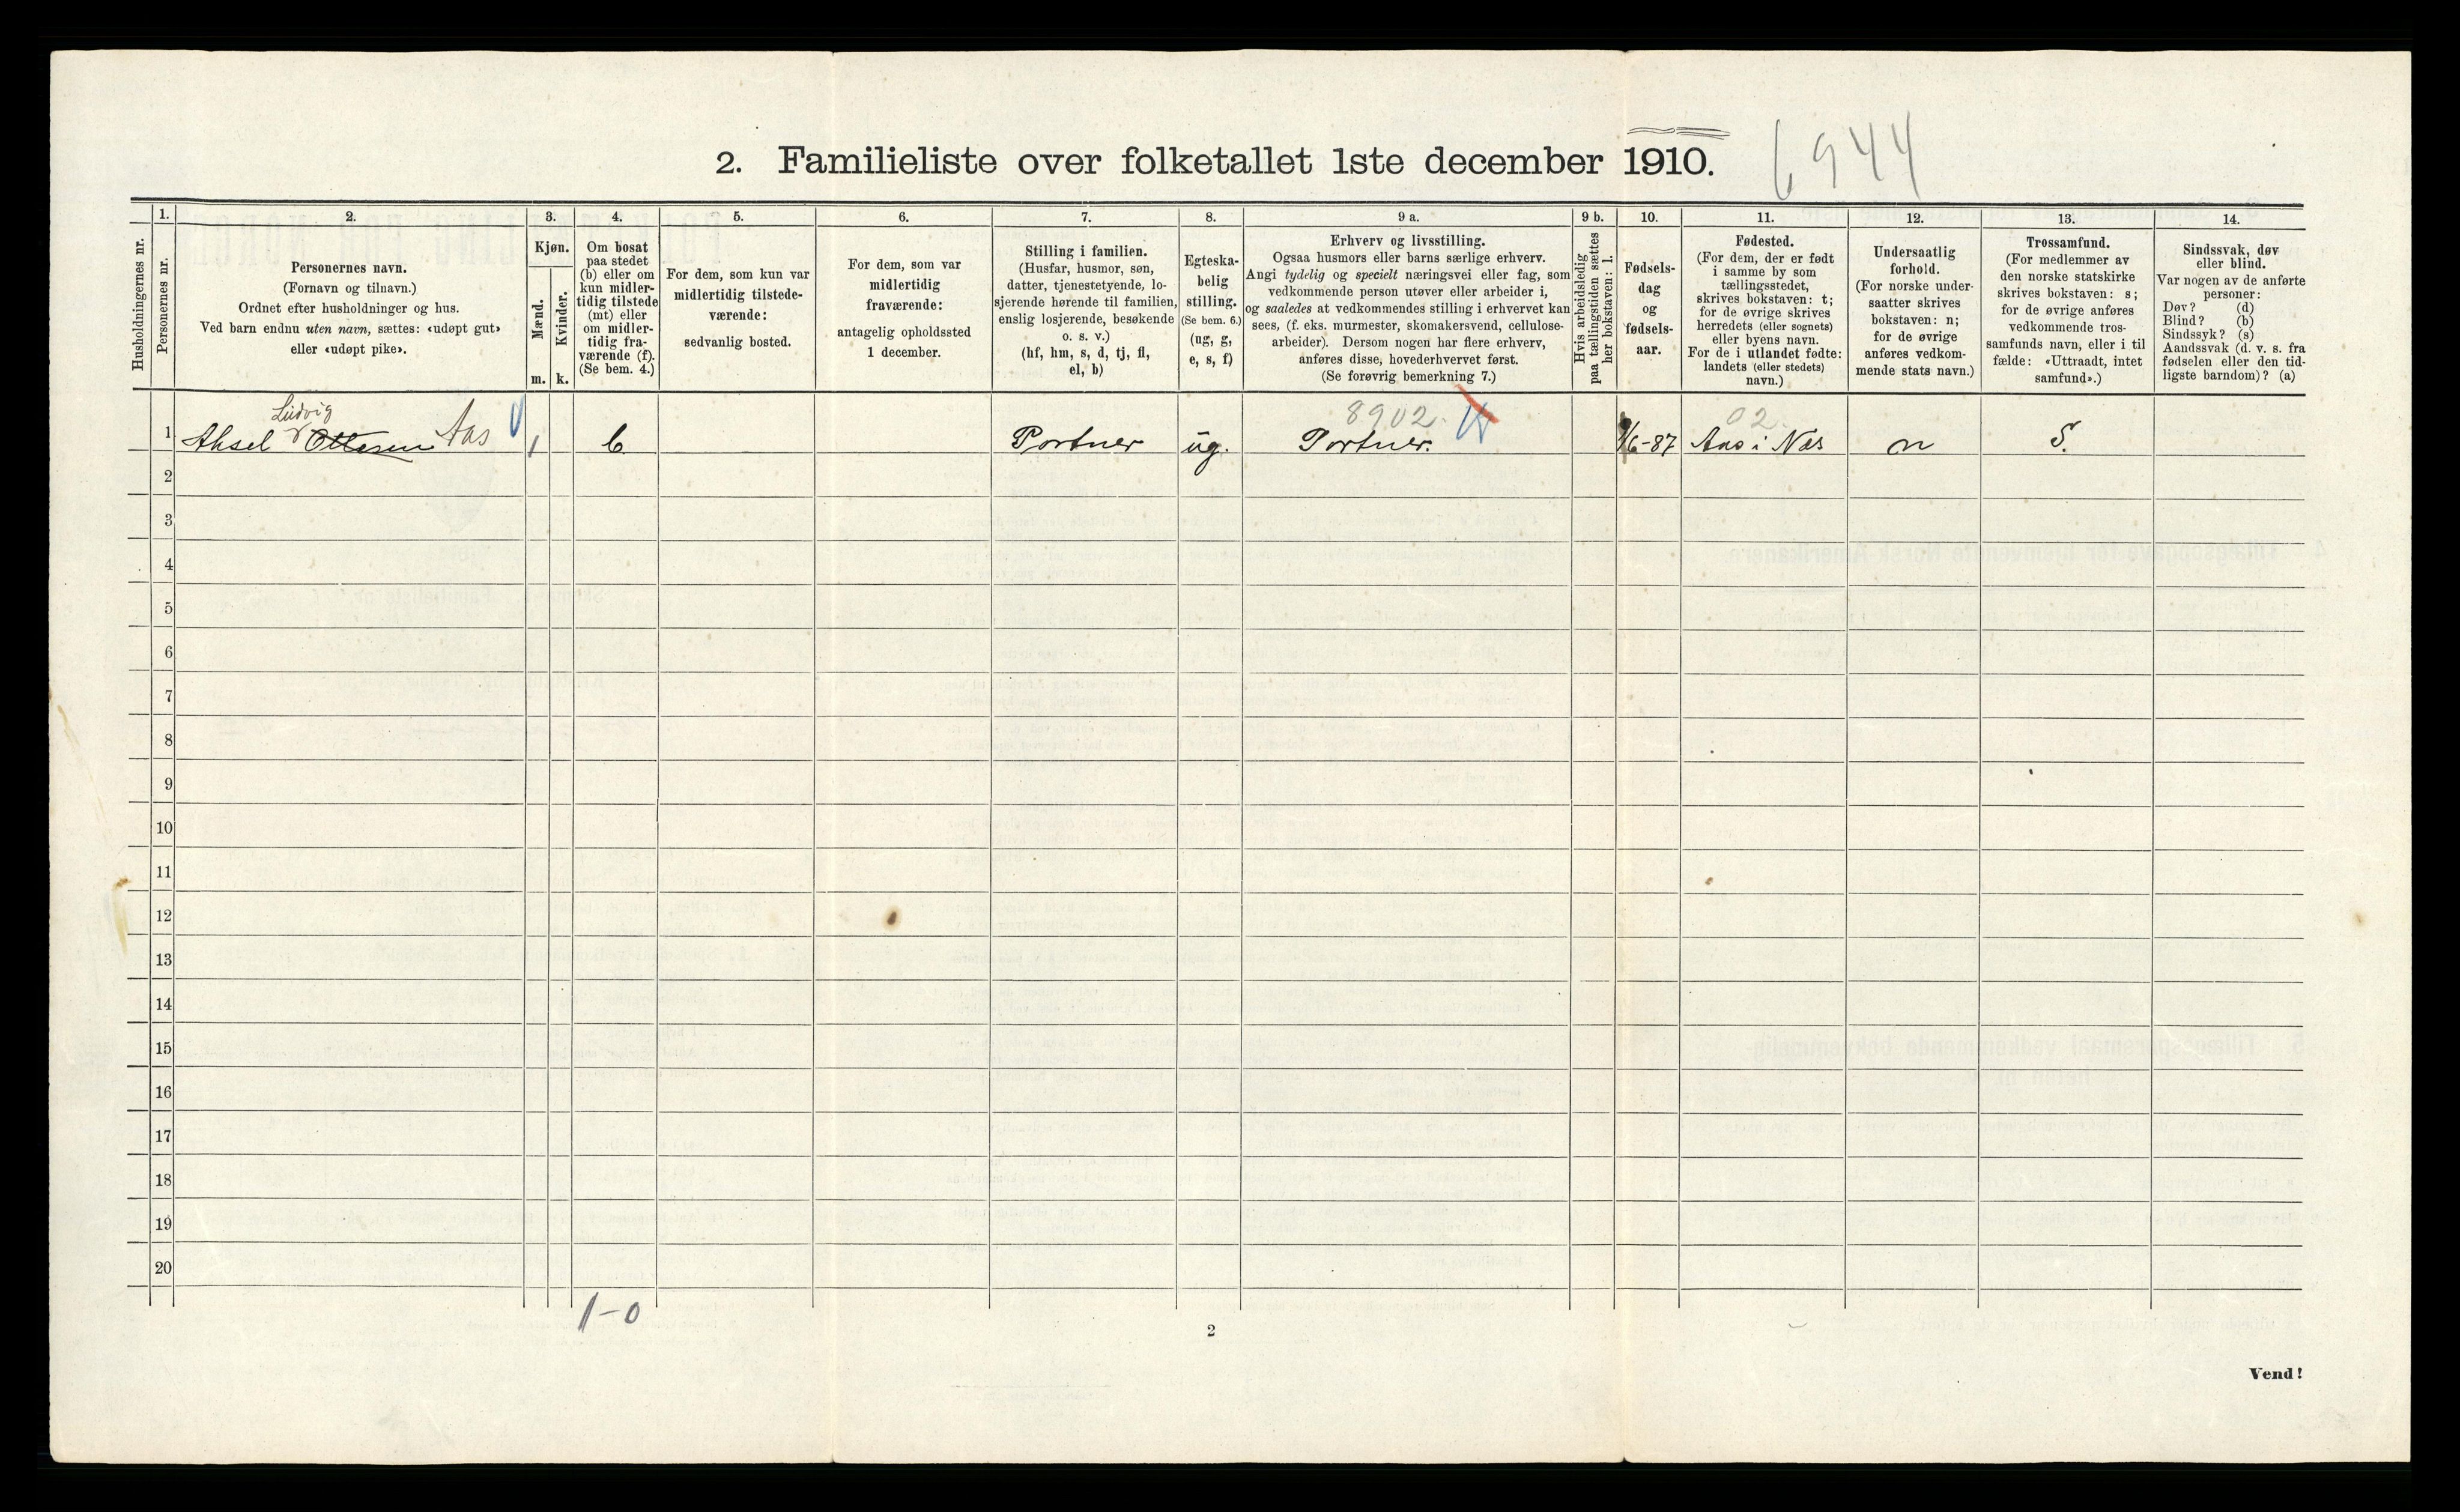 2. Familieliste over folketallet 1ste december 1910.
6944
Husholdningernes nr.
1.
Personernes nr.
2.
Personernes navn.
(Fornavn og tilnavn.)
Ordnet efter husholdninger og hus.
Ved barn endnu uten navn, sættes: «udøpt gut»
eller «udøpt pike».
3.
Kjøn.
Mænd.
m.
Kvinder.
k.
4.
Om bosat
paa stedet
(b) eller om
kun midler-
tidig tilstede
(mt) eller
om midler-
tidig fra-
værende (f).
(Se bem. 4.)
5.
For dem, som kun var
midlertidig tilstede-
værende:
sedvanlig bosted.
6.
For dem, som var
midlertidig
fraværende:
antagelig opholdssted
1 december.
7.
Stilling i familien.
(Husfar, husmor, søn,
datter, tjenestetyende, lo-
sjerende hørende til familien,
enslig losjerende, besøkende
o. s. v.)
(hf, hm, s, d, tj, fl,
el, b)
8.
Egteska-
belig
stilling.
(Se bem. 6.)
(ug, g,
e, s, f)
9 a.
Erhverv og livsstilling.
Ogsaa husmors eller barns særlige erhverv.
Angi tydelig og specielt næringsvei eller fag, som
vedkommende person utøver eller arbeider i,
og saaledes at vedkommendes stilling i erhvervet kan
sees, (f. eks. murmester, skomakersvend, cellulose-
arbeider). Dersom nogen har flere erhverv,
anføres disse, hovederhvervet først.
(Se forøvrig bemerkning 7.)
9 b.
Hvis arbeidsledig
paa tællingstiden sættes
her bokstaven: l.
10.
Fødsels-
dag
og
fødsels-
aar.
11.
Fødested.
(For dem, der er født
i samme by som
tællingsstedet,
skrives bokstaven: t;
for de øvrige skrives
herredets (eller sognets)
eller byens navn.
For de i utlandet fødte:
landets (eller stedets)
navn.)
12.
Undersaatlig
forhold.
(For norske under-
saatter skrives
bokstaven: n;
for de øvrige
anføres vedkom-
mende stats navn.)
13.
Trossamfund.
(For medlemmer av
den norske statskirke
skrives bokstaven: s;
for de øvrige anføres
vedkommende tros-
samfunds navn, eller i til
fælde: «Uttraadt, intet
samfund».)
14.
Sindssvak, døv
eller blind.
Var nogen av de anførte
personer:
Døv? (d)
Blind? (b)
Sindssyk? (s)
Aandssvak (d. v. s. fra
fødselen eller den tid-
ligste barndom)? (a)
Ludvig
8902.
02.
1 Aksel Ottesen Aas 1 b Portner ug. Portner. Aas i Næs n S.
2
3
4
5
6
7
8
9
10
11
12
13
14
15
16
17
18
19
20
1-0
2
Vend!